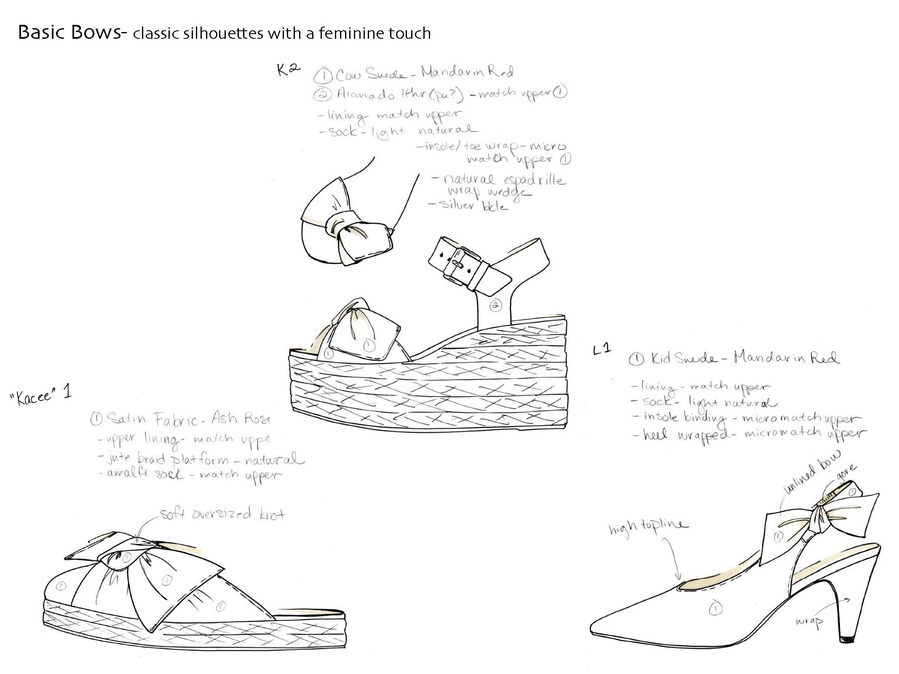 Basic Bows- classic silhouettes with a feminine touch
K2
① Cow Suede - Mandarin Red
② Aranado lthr (pu?) - match upper ①
- lining match upper
- sock - light natural
- insole/toe wrap - micro
match upper ①
- natural espadrille
wrap wedge
- silver bkle
①
①
②
L1
① Kid Suede - Mandarin Red
- lining - match upper
- sock - light natural
- insole binding - micro match upper
- heel wrapped - micro match upper
unlined bow
gore
high topline
①
①
①
wrap
"Kacee" 1
① Satin Fabric - Ash Rose
- upper lining - match uppe
- jute braid platform - natural
- amalfi sock - match upper
soft oversized knot
①
①
①
①